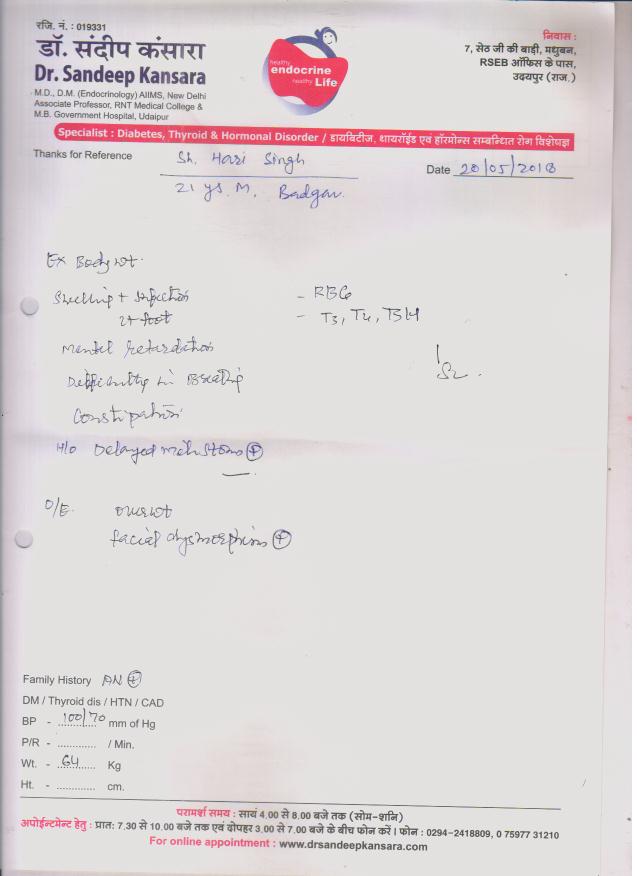 रजि. नं. : 019331
डॉ. संदीप कंसारा
Dr. Sandeep Kansara
M.D., D.M. (Endocrinology) AIIMS, New Delhi
Associate Professor, RNT Medical College &
M.B. Government Hospital, Udaipur
healthy
endocrine
healthy Life
निवास :
7, सेठ जी की बाड़ी, मधुबन,
RSEB ऑफिस के पास,
उदयपुर (राज.)
Specialist : Diabetes, Thyroid & Hormonal Disorder / डायबिटीज, थायरॉईड एवं हॉरमोन्स सम्बन्धित रोग विशेषज्ञ
Thanks for Reference Sh. Hari Singh
Date 28/05/2018
21 ys. M. Badgav.
Ex Body wt.
Swelling + Infection - RBG
foot - T3, T4, TSH
Mental retardation
Difficulty in
Constipation
H/o Delayed milestones +
O/E.
facial dysmorphism +
Family History +
DM / Thyroid dis / HTN / CAD
BP - 100/70 mm of Hg
P/R - ............. / Min.
Wt. - 64 Kg
Ht. - ............. cm.
परामर्श समय : सायं 4.00 से 8.00 बजे तक (सोम-शनि)
अपोईन्टमेन्ट हेतु : प्रात: 7.30 से 10.00 बजे तक एवं दोपहर 3.00 से 7.00 बजे के बीच फोन करें । फोन : 0294-2418809, 0 75977 31210
For online appointment : www.drsandeepkansara.com